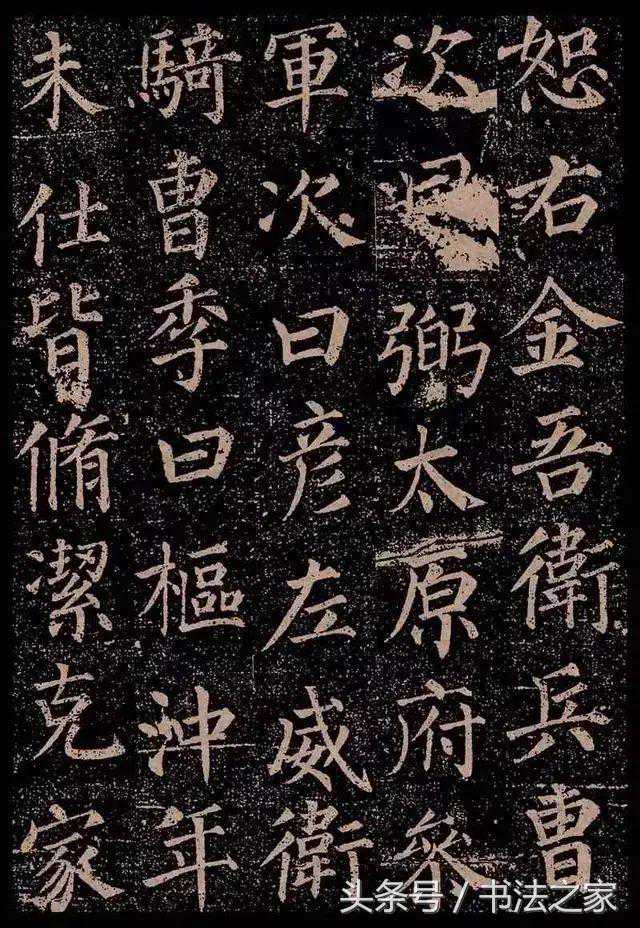 恕右金吾衛兵曹
次曰弼太原府叅
軍次曰彦左威衛
騎曹季曰樞沖年
未仕皆脩潔克家
头条号 / 书法之家